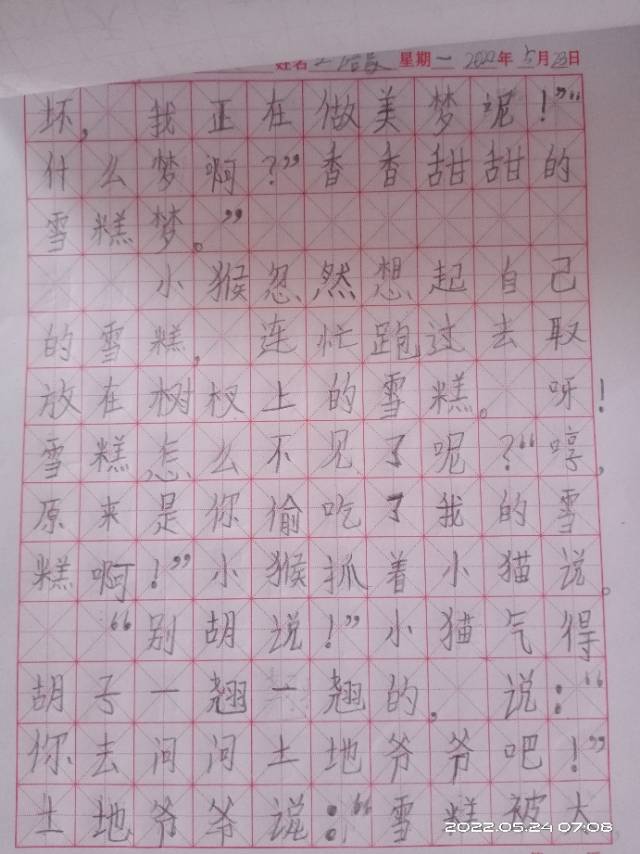 姓名 星期一 2022年5月23日
坏，我正在做美梦呢！”“
什么梦啊？”香香甜甜的
雪糕梦。”
小猴忽然想起自己
的雪糕，连忙跑过去取
放在树杈上的雪糕。呀！
雪糕怎么不见了呢？“哼，
原来是你偷吃了我的雪
糕啊！”小猴抓着小猫说。
“别胡说！”小猫气得
胡子一翘一翘的，说：“
你去问问土地爷爷吧！”
土地爷爷说：“雪糕被太
2022.05.24 07:08